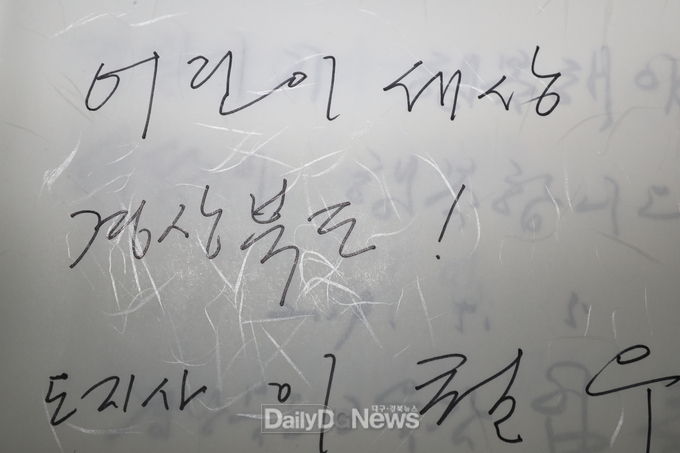 어린이 세상
경상북도 !
도지사 이 철 우
대구·경북뉴스
DailyDGNews